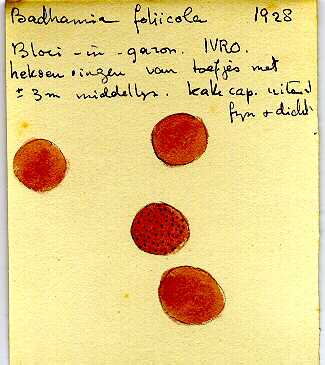 Badhamia foliicola 1928
Bloei - in - garon. IVRO.
heksenringen van toefjes met
± 3 m middellyn. kalk cap. uiterst
fyn & dicht